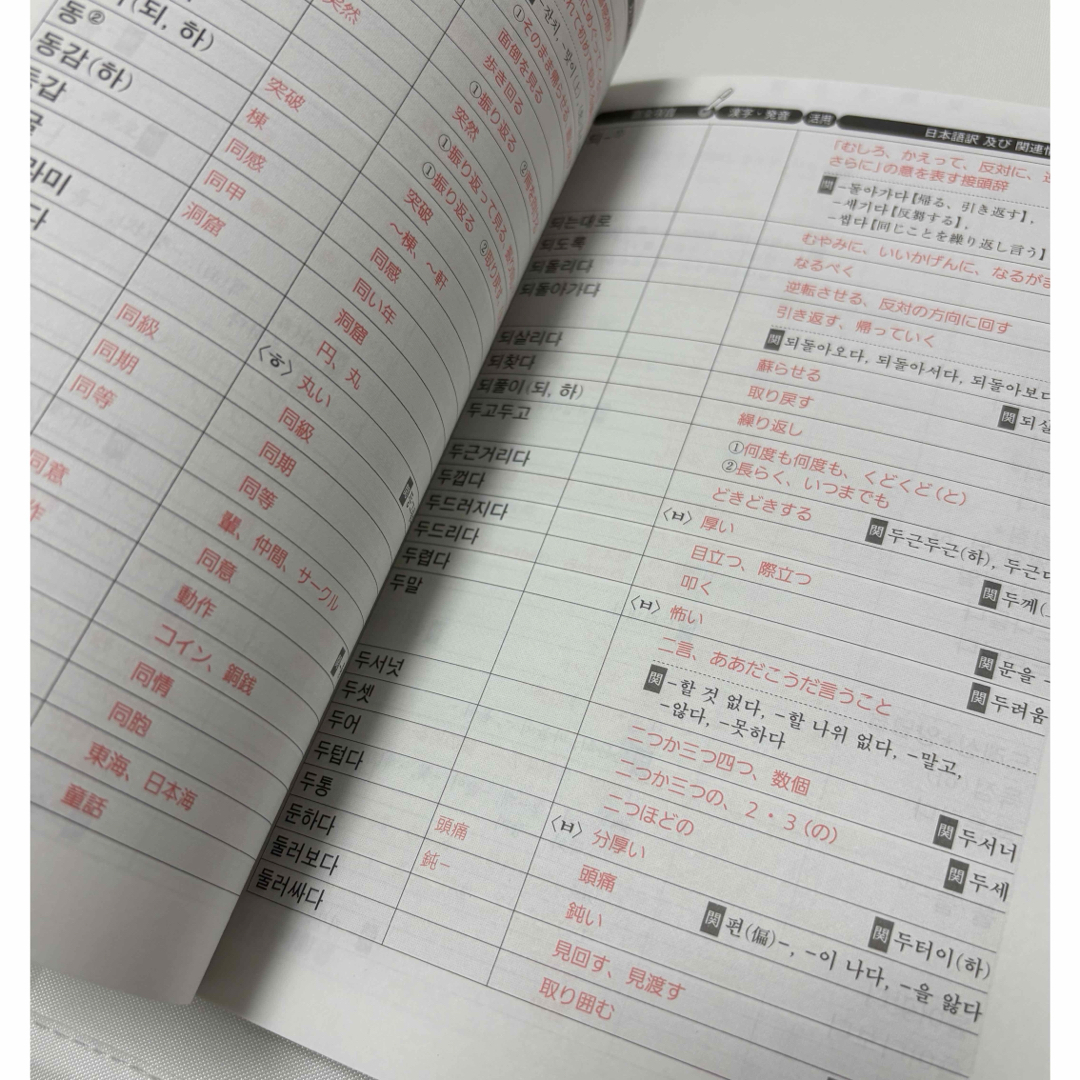 동②
(되, 하)
동감(하)
突然
突破
棟
同感
同甲
洞窟
同級
同期
同等
同意
面倒を見る
歩き回る
①振り返る
突然
①振り返って見る
①振り返る
突破
〜棟、〜軒
同感
同い年
洞窟
円、丸
〈ㅎ〉丸い
同級
同期
同等
輩、仲間、サークル
同意
動作
コイン、銅銭
同情
同胞
東海、日本海
童話
漢字・発音
活用
日本語訳 及び 関連情
「むしろ、かえって、反対に、
さらに」の意を表す接頭辞
関 -돌아가다【帰る、引き返す】,
-새기다【反芻する】,
-씹다【同じことを繰り返し言う】
되는대로
むやみに、いいかげんに、なるがま
되도록
なるべく
되돌리다
逆転させる、反対の方向に回す
되돌아가다
引き返す、帰っていく
関 되돌아오다, 되돌아서다, 되돌아보다
되살리다
蘇らせる
関 되살
되찾다
取り戻す
되풀이(되, 하)
繰り返し
두고두고
①何度も何度も、くどくど(と)
②長らく、いつまでも
두근거리다
どきどきする
関 두근두근(하), 두근다
두껍다
〈ㅂ〉厚い
関 두께
두드러지다
目立つ、際立つ
두드리다
叩く
関 문을
두렵다
〈ㅂ〉怖い
関 두려움
두말
二言、ああだこうだ言うこと
関 -할 것 없다, -할 나위 없다, -말고,
-않다, -못하다
두서넛
二つか三つ四つ、数個
関 두서너
두셋
二つか三つの、2・3(の)
関 두세
두어
二つほどの
두텁다
〈ㅂ〉分厚い
関 두터이(하)
두통
頭痛
頭痛
関 편(偏)-, -이 나다, -을 앓다
둔하다
鈍-
鈍い
둘러보다
見回す、見渡す
둘러싸다
取り囲む